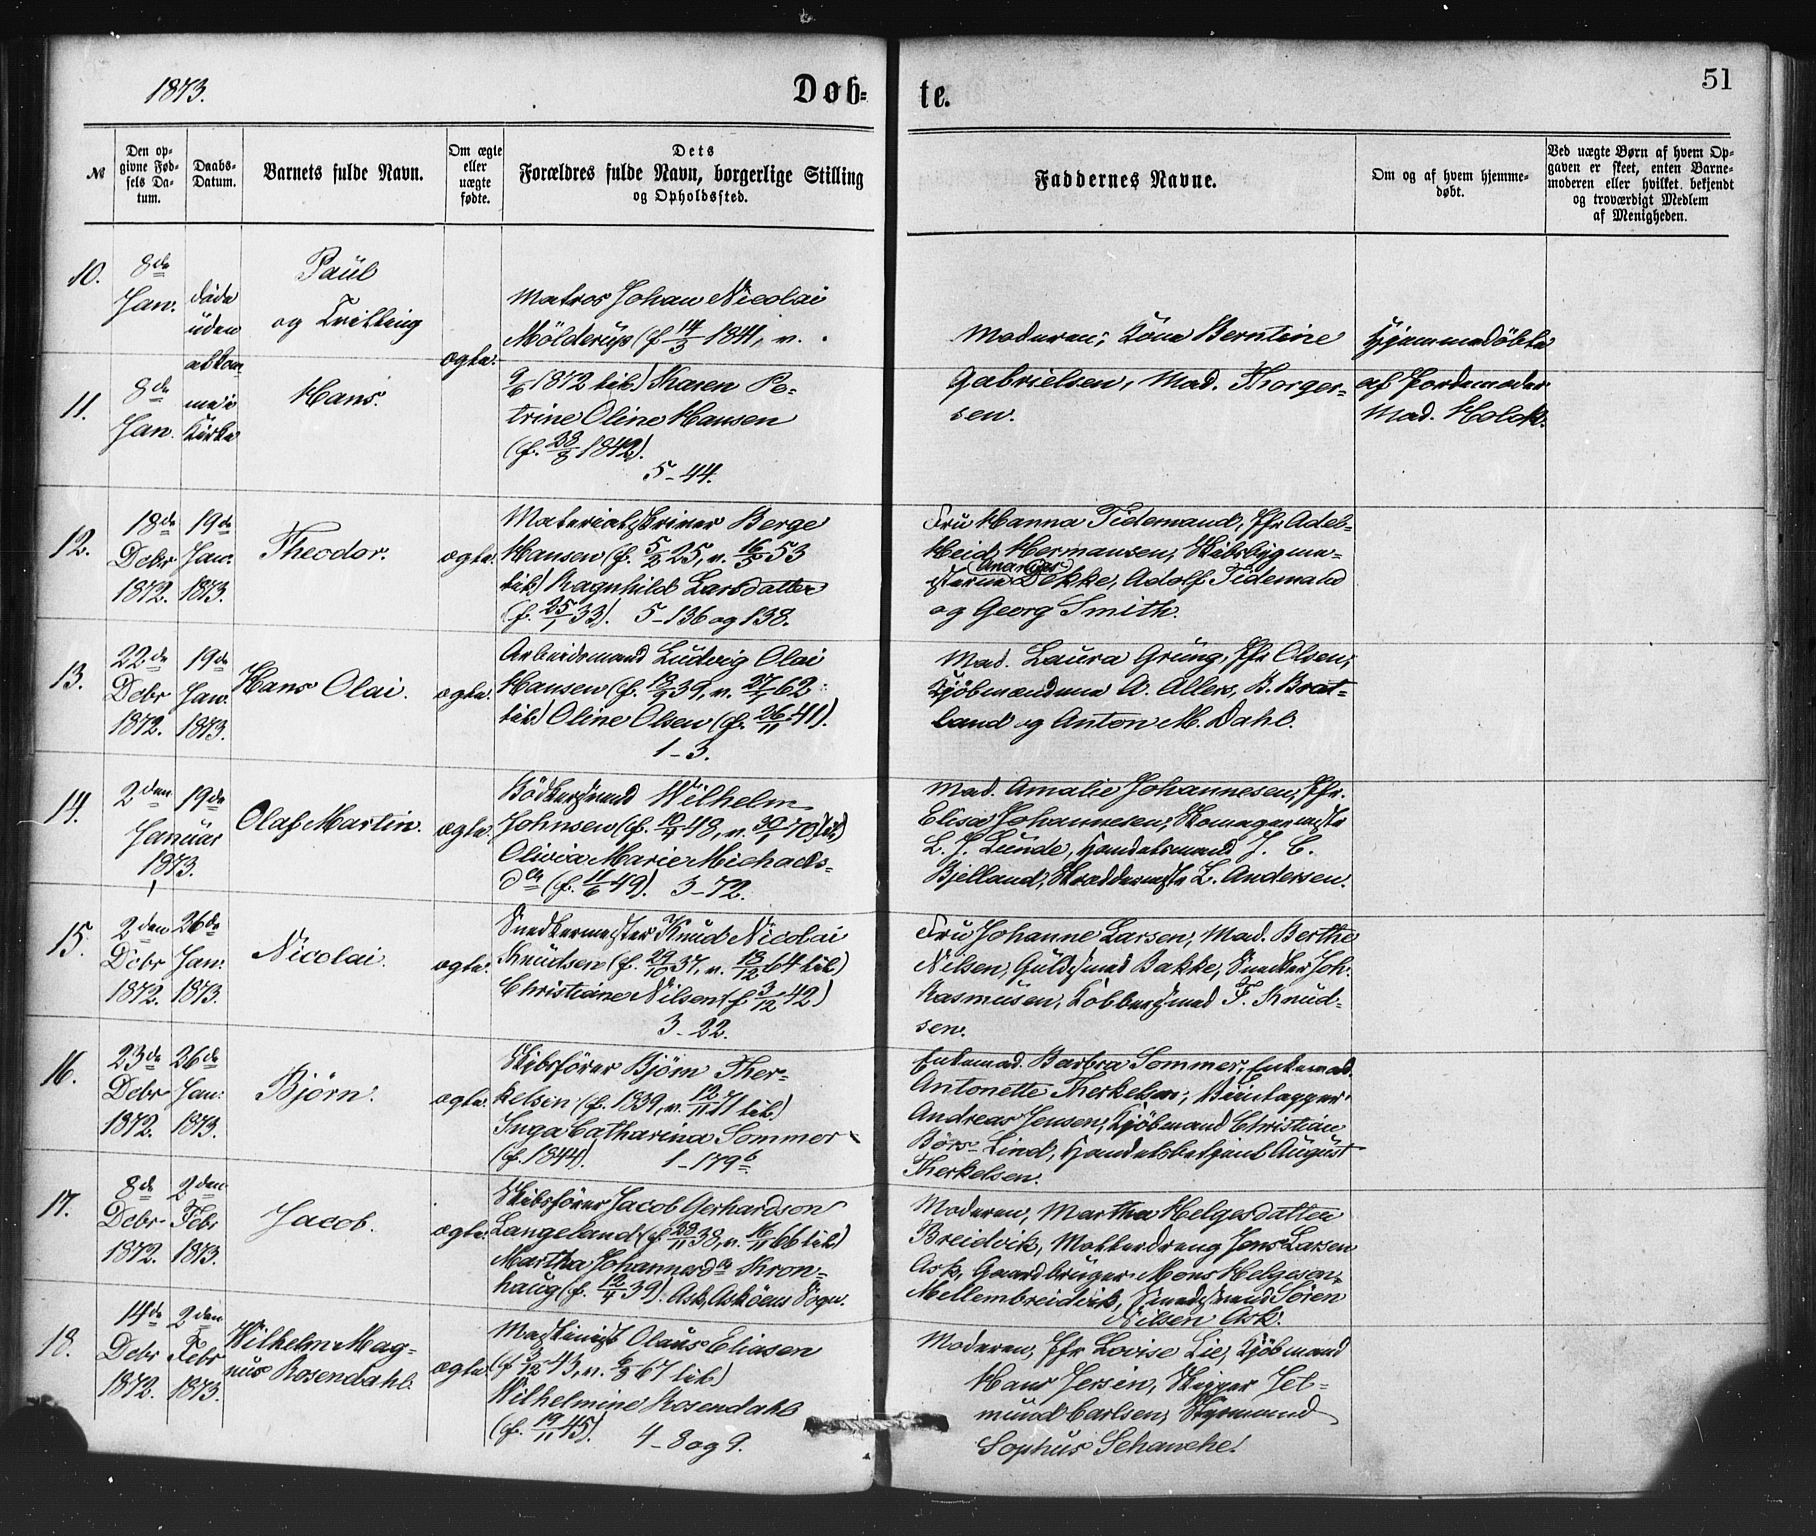 1873.
Døb-
te.
51
№
Den op-
givne Fød-
sels Da-
tum.
Daabs-
Datum.
Barnets fulde Navn.
Om ægte
eller
uægte
fødte.
Dets
Forældres fulde Navn, borgerlige Stilling
og Opholdssted.
Faddernes Navne.
Om og af hvem hjemme-
døbt.
Ved uægte Børn af hvem Op-
gaven er skeet, enten Barne-
moderen eller hvilket bekjendt
og troværdigt Medlem
af Menigheden.
10.
8de
Jan.
døde
uden
at kom
me i
Kirke
Paul
og Trilling
11.
8de
Jan.
Hans.
ægte.
Matros Johan Nicolai
Mölderup (f 14/3 1841, v.
9/6 1872 til) Karen Pe-
trine Oline Hansen
(f. 28/8 1842).
5-44.
Moderen; Kone Berntine
Gabrielsen, Mad. Thorger-
sen.
Hjemmedöbte
af Jordemoder
Mad. Holck.
12.
18de
Debr
1872.
19de
Jan.
1873.
Theodor.
ægte.
Materialskriver Berge
Hansen (f. 5/2 25, v. 16/5 53
til) Ragnhild Larsdatter
(f. 25/1 33). 5-136 og 138.
Fru Hanna Tidemand, Jfr Adel-
heid Hermansen, Skibsbygme-
(Ananias)
Dekke, Adolf Tidemand
og Georg Smith.
13.
22de
Debr
1872.
19de
Jan.
1873.
Hans Olai.
ægte.
Arbeidsmand Ludvig Olai
Hansen (f. 12/9 39, v. 27/7 62
til) Oline Olsen (f. 26/11 41).
1-3.
Mad. Laura Grung, Jfr Olsen;
Kjöbmændene A. Allers, B. Brat-
land og Anton M. Dahl.
14.
2den
Januar
1873.
19de
Olaf Martin.
ægte.
Bödkersvend Wilhelm
Johnsen (f. 10/4 48, v. 30/1 70 til)
Olivia Marie Michaels-
dtr (f. 11/6 49). 3-72.
Mad. Amalie Johannesen, Jfr.
Elisa Johannesen, Skomagermester
L. J. Lunde, Handelsmand J. C.
Bjelland, Skræddermester L. Andersen.
15.
2den
Debr
1872.
26de
Jan:
1873.
Nicolai.
ægte.
Snedkermester Knud Nicolai
Knudsen (f. 29/10 37, v. 13/12 64 til)
Christiane Nilsen (f 3/12 42)
3-22.
Fru Johanne Larsen, Mad. Berthe
Nilsen, Guldsmed Bakke, Snedker Joh.
Rasmusen, Kobbersmed F. Knud-
sen.
16.
23de
Debr
1872.
26de
Jan:
1873.
Bjørn.
ægte.
Skibsförer Bjørn Ther-
kelsen (f. 1839, v. 12/11 71 til)
Inga Catharina Sommer
(f. 1844). 1-179b
Enkemad. Barbra Sommer, Enkemad.
Antonette Therkelsen; Vintapper
Andreas Jensen, Kjöbmand Christian
Börs Lind, Handelsbetjent August
Therkelsen.
17.
8de
Debr
1872.
2den
Febr
1873.
Jacob.
ægte.
Skibsförer Jacob Gerhardson
Langeland (f. 22/11 38, v. 16/11 66 til)
Martha Johannesdr Kron-
haug (f. 12/4 39). Ask, Asköens Sogn.
Moderen, Martha Helgesdatter
Breidvik, Matterdreng Jens Larsen
Ask, Gaardbruger Mons Helgesen
Mellembreidvik, Sören
Nilsen Ask.
18.
14de
Debr
1872.
2den
Febr
1873.
Wilhelm Mag-
nus Rosendahl.
ægte.
Maskinist Olaus Eliasen
(f 3/12 43, v. 6/3 67 til)
Wilhelmine Rosendahl
(f. 19/11 45). 4-8 og 9.
Moderen, Jfr Lovise Lie, Kjöbmand
Hans Jersin, Skipper Jet-
mund Carlsen, Styrmand
Sophus Schanche.